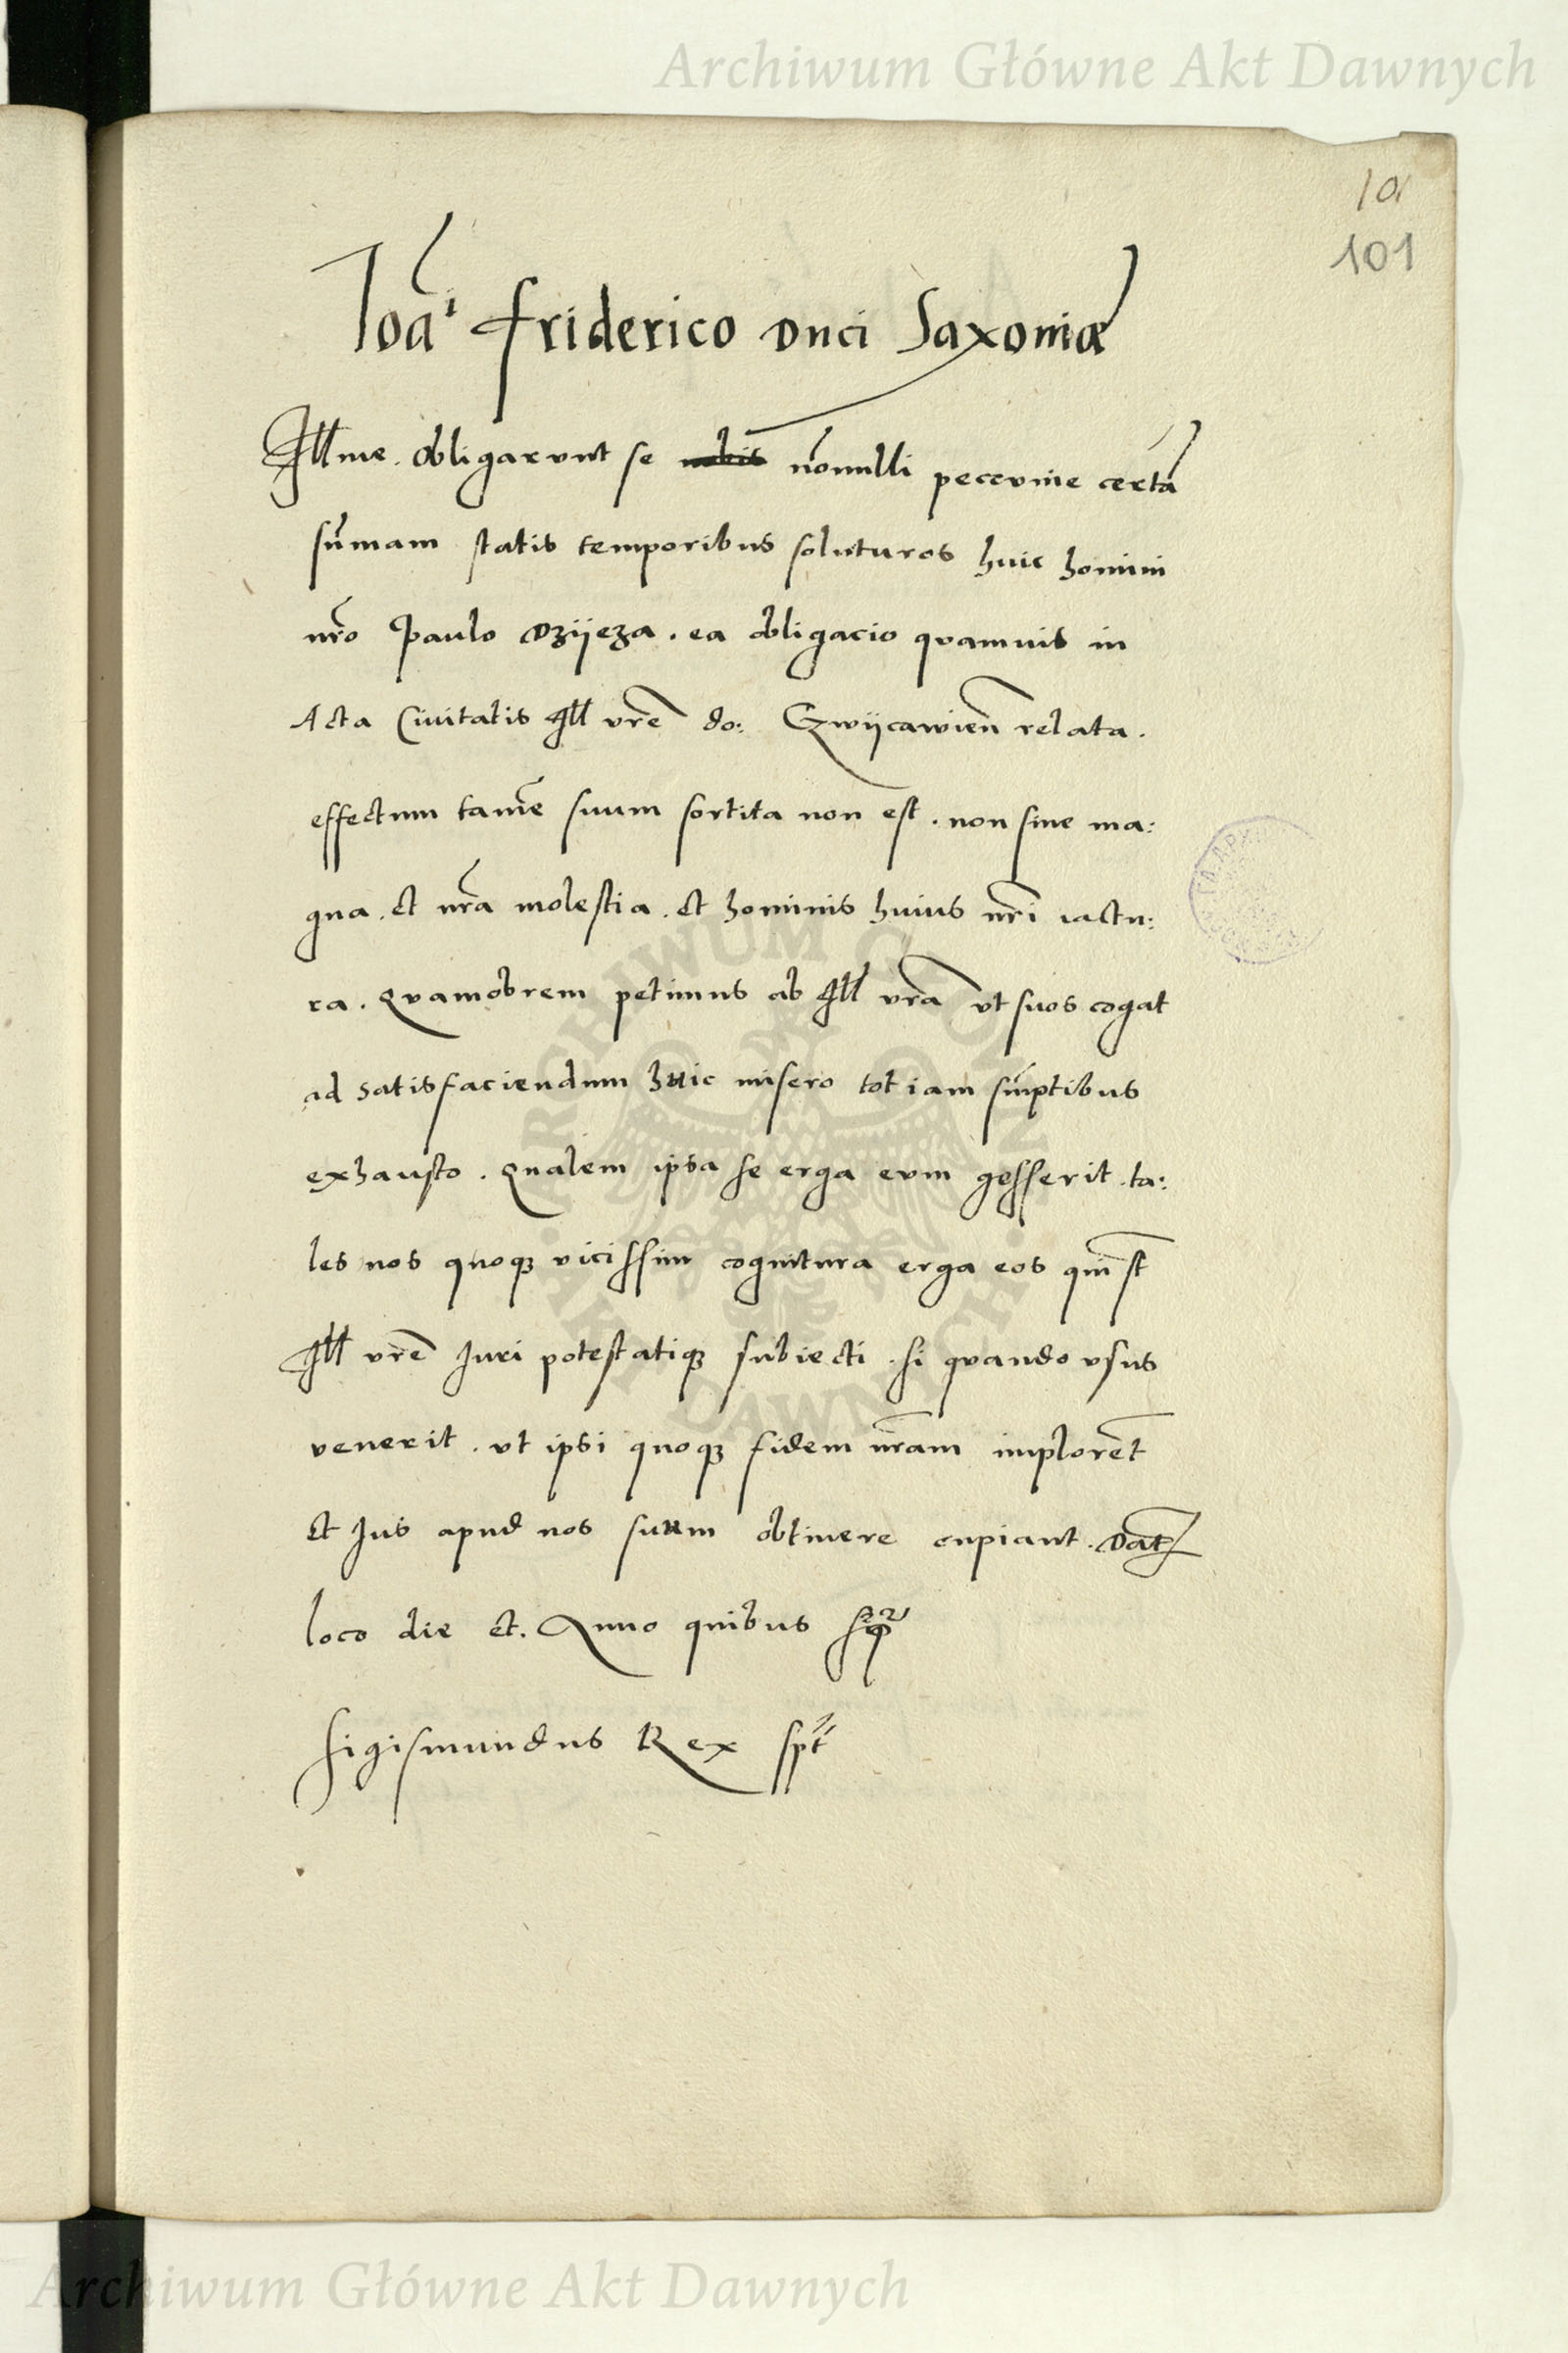 Archiwum Główne Akt Dawnych
101
Ioā Friderico Duci Saxoniæ
Illme. Obligarunt se nobis nōnulli pecunie certā
sūmam statis temporibus soluturos huic homini
nrō Paulo Dzijeza. ea obligacio quamuis in
Acta Civitatis Ill vrē do: Czwijcawień relata.
effectum tamē suum sortita non est. non sine ma:
gna. et nrā molestia. et hominis huius nrī iactu:
ra. Quamobrem petimus ab Ill vrā vt suos cogat
ad satisfaciendum huic misero tot iam sūptibus
exhausto. Qualem ipsa se erga eum gesserit. ta:
les nos quoqꝫ vicissim cognitura erga eos qui st̄
Ill vrē Iuri potestatiqꝫ subiecti. si quando vsus
venerit. vt ipsi quoqꝫ fidem nrām implorēt
et Ius apud nos suum obtinere cupiant. Dat
loco die et. Anno quibus
Sigismundus Rex sp̄t
ARCHIWUM GŁÓWNE
AKT DAWNYCH
Archiwum Główne Akt Dawnych